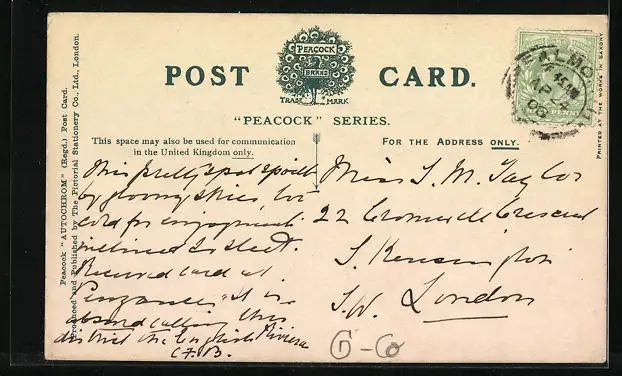 PEACOCK
BRAND
TRADE MARK
POST CARD.
"PEACOCK" SERIES.
This space may also be used for communication
in the United Kingdom only.
FOR THE ADDRESS ONLY.
Peacock "AUTOCHROM" (Regd.) Post Card.
Produced and Published by The Pictorial Stationery Co., Ltd., London.
PRINTED AT THE WORKS IN SAXONY
FALMO
AP 24
06
This pretty spot spoilt
by gloomy skies, too
cold for enjoyment
inclined to sleet.
Received card at
Penzance. It is
absurd calling this
district the English Riviera
C.F.B.
Miss S. M. Taylor
22 Cromwell Crescent
S. Kensington
S.W. London
G-Co